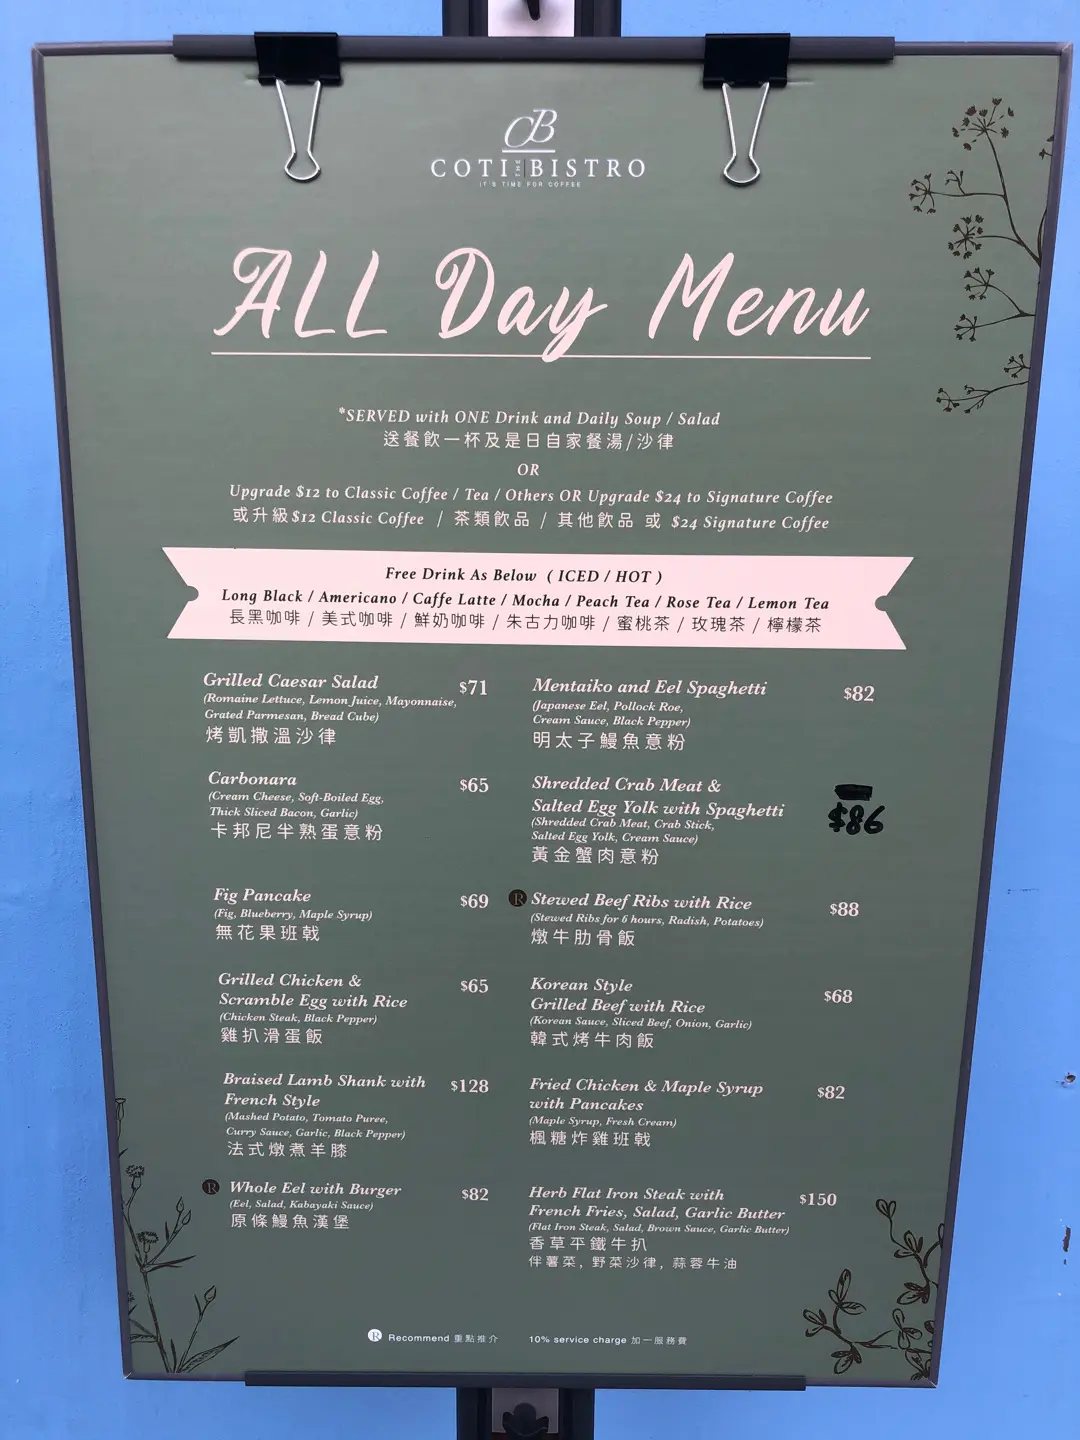 CB
COTI THE BISTRO
IT'S TIME FOR COFFEE
ALL Day Menu
*SERVED with ONE Drink and Daily Soup / Salad
送餐飲一杯及是日自家餐湯/沙律
OR
Upgrade $12 to Classic Coffee / Tea / Others OR Upgrade $24 to Signature Coffee
或升級$12 Classic Coffee / 茶類飲品 / 其他飲品 或 $24 Signature Coffee
Free Drink As Below ( ICED / HOT )
Long Black / Americano / Caffe Latte / Mocha / Peach Tea / Rose Tea / Lemon Tea
長黑咖啡 / 美式咖啡 / 鮮奶咖啡 / 朱古力咖啡 / 蜜桃茶 / 玫瑰茶 / 檸檬茶
Grilled Caesar Salad $71
(Romaine Lettuce, Lemon Juice, Mayonnaise,
Grated Parmesan, Bread Cube)
烤凱撒溫沙律
Carbonara $65
(Cream Cheese, Soft-Boiled Egg,
Thick Sliced Bacon, Garlic)
卡邦尼半熟蛋意粉
Fig Pancake $69
(Fig, Blueberry, Maple Syrup)
無花果班戟
Grilled Chicken & $65
Scramble Egg with Rice
(Chicken Steak, Black Pepper)
雞扒滑蛋飯
Braised Lamb Shank with $128
French Style
(Mashed Potato, Tomato Puree,
Curry Sauce, Garlic, Black Pepper)
法式燉煮羊膝
R Whole Eel with Burger $82
(Eel, Salad, Kabayaki Sauce)
原條鰻魚漢堡
Mentaiko and Eel Spaghetti $82
(Japanese Eel, Pollock Roe,
Cream Sauce, Black Pepper)
明太子鰻魚意粉
Shredded Crab Meat &
Salted Egg Yolk with Spaghetti $86
(Shredded Crab Meat, Crab Stick,
Salted Egg Yolk, Cream Sauce)
黃金蟹肉意粉
R Stewed Beef Ribs with Rice $88
(Stewed Ribs for 6 hours, Radish, Potatoes)
燉牛肋骨飯
Korean Style $68
Grilled Beef with Rice
(Korean Sauce, Sliced Beef, Onion, Garlic)
韓式烤牛肉飯
Fried Chicken & Maple Syrup $82
with Pancakes
(Maple Syrup, Fresh Cream)
楓糖炸雞班戟
Herb Flat Iron Steak with $150
French Fries, Salad, Garlic Butter
(Flat Iron Steak, Salad, Brown Sauce, Garlic Butter)
香草平鐵牛扒
伴薯菜, 野菜沙律, 蒜蓉牛油
R Recommend 重點推介 10% service charge 加一服務費